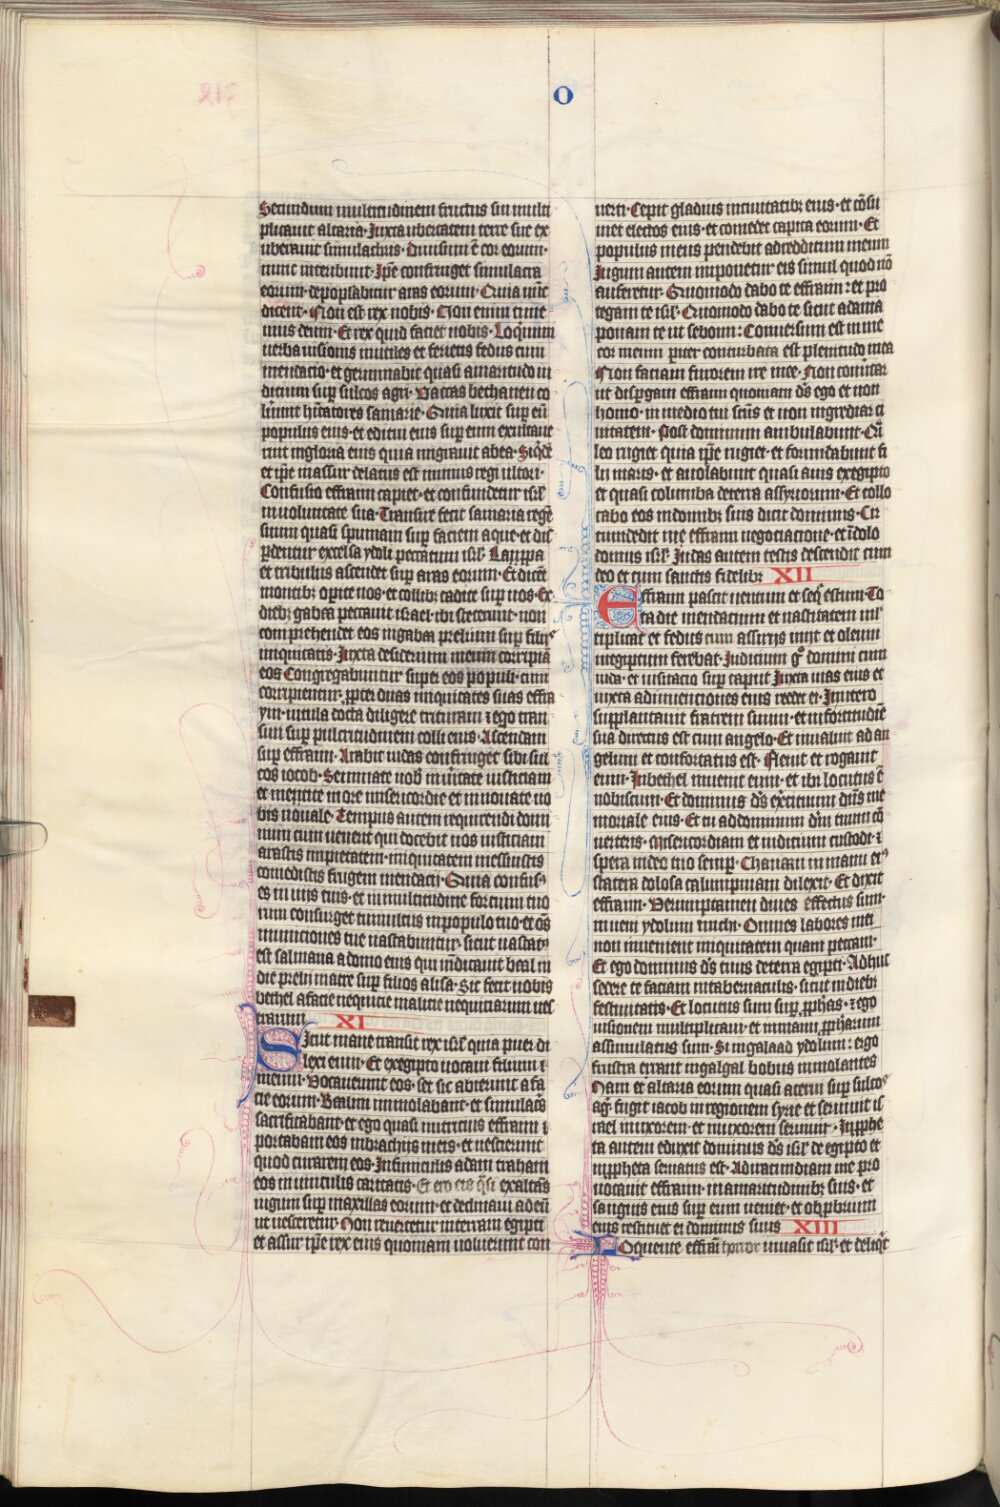 O
Secundum multitudinem fructus sui multi
plicauit altaria· Iuxta ubertatem terre sue ex
uberauit simulachris· Diuisum ē cor eorum·
nunc interibunt· Ipē confringet simulacra
eorum· depopĺabitur aras eorum· Quia nūc
dicent· Non est rex nobis· Non enim time
mus deum· Et rex quid faciet nobis· Loq̄mini
uerba uisionis inutiles et ferietis fedus cum
mendacio· et germinabit quasi amaritudo iu
dicium suꝑ sulcos agri· Vaccas bethauen co
luerunt hītatores samarie· Quia luxit suꝑ eū
populus eius· et editui eius suꝑ eum exultaue
runt ingloria eius quia migrauit abea· Siq̄dē
et ipē inassur delatus est munus regi ultori·
Confusio effraim capiet· et confundetur isrl̄
inuoluntate sua· Transire fecit samaria regē
suum quasi spumam suꝑ faciem aque· et dis
ꝑdentur excelsa ydoli peccatum isrl̄· Lappa
et tribulus ascendet suꝑ aras eorum· Et dicēt
montibꝫ oꝑite nos· et collibꝫ cadite suꝑ nos· Ex
diebꝫ gabaa peccauit israel· ibi steterunt· non
comprehendet eos ingabaa prelium suꝑ filios
iniquitatis· Iuxta desiderium meum corripiā
eos Congregabuntur super eos populi· cum
corripientur· ꝓpter duas iniquitates suas effra
ym· uitula docta diligere trituram ⁊ ego tran
siui suꝑ pulcritudinem colli eius· Ascendam
suꝑ effraim· Arabit iudas confringet sibi sul
cos iacob· Seminate uob̄ inūitate iusticiam
et metite in ore misericordie et innouate uo
bis nouale· Tempus autem requirendi domi
num cum uenerit qui docebit uos iusticiam
arastis impietatem· iniquitatem messuistis
comedistis frugem mendacii· Quia confisꝰ
es in uiis tuis· et in multitudine fortium tuo
rum consurget tumultus inpopulo tuo· et oēs
municiones tue uastabuntur· sicut uastatꝰ
est salmana adomo eius qui iudicauit beal in
die prelii matre suꝑ filios alisa· Sic fecit uobis
bethel afacie nequicie malicie nequitiarum ues
trarum XI
Sicut mane transiit rex isrl̄ quia puer di
lexi eum· Et exegipto uocaui filium
meum· Vocauerunt eos· sic abierunt afa
cie eorum· Baalim immolabant· et simulacris
sacrificabant· et ego quasi nutricius effraim
portabam eos inbrachiis meis· et nescierunt
quod curarem eos· Infuniculis adam traham
eos inuinculis caritatis· Et ero eis q̄si exaltās
iugum suꝑ maxillas eorum· et declinaui adeū
ut uesceretur· Non reuertetur interram egipti
et assur ipē rex eius quoniam noluerunt con
uerti· Cepit gladius inciuitatibꝫ eius· et cōsu
met electos eius· et comedet capita eorum· Et
populus meus pendebit adredditum meum
Iugum autem imponetur eis simul quod nō
auferetur· Quomodo dabo te effraim· et pro
tegam te isrl̄· Quomodo dabo te sicut adama
ponam te ut seboim: Conuersum est in me
cor meum pariter conturbata est plenitudo mea
Non faciam furorem ire mee· Non conuertar
ut disꝑgam effraim quoniam dō̄s ego et non
homo· in medio tui scūs et non ingrediar ci
uitatem· Post dominum ambulabunt· Qūi
leo rugiet quia ipē rugiet· et formidabunt fi
lii maris· et auolabunt quasi auis exegipto
et quasi columba deterra assyriorum· Et collo
cabo eos indomibꝫ suis dicit dominus· Cir
cumdedit me effraim negociacione· et ī dolo
domus isrl̄· Iudas autem testis descendit cum
deo et cum sanctis fidelibꝫ XII
Effraim pascit uentum et seq̄ estum· To
ta die mendacium et uastitatem mĺ
tiplicat et fedus cum assiriis iniit et oleum
inegiptum ferebat· Iudicium gͦ domini cum
iuda· et uisitacio suꝑ iacob· Iuxta uias eius et
iuxta adinuenciones eius reddet ei· Inutero
supplantauit fratrem suum· et infortitudine
sua directus est cum angelo· Et inualuit ad an
gelum et confortatus est· Fleuit et rogauit
eum· Inbethel inuenit eum· et ibi locutus ē
nobiscum· Et dominus dō̄s exercituum dn̄s me
moriale eius· Et tu addominum dm̄ tuum cō
uerteris· Misericordiam et iudicium custodi· ⁊
spera indeo tuo semꝑ· Chanaan inmanu eiꝰ
statera dolosa calumpniam dilexit· Et dixit
effraim· Verumptamen diues effectus sum·
inueni ydolum michi· Omnes labores mei
non inuenient iniquitatem quam peccaui·
Et ego dominus dō̄s tuus deterra egipti· Adhuc
sedere te faciam intabernaculis· sicut indiebꝫ
festiuitatis· Et locutus sum suꝑ ꝓphās· ⁊ ego
uisionem multiplicaui· et inmanu ꝓphārum
assimulatus sum· Si ingalaad ydolum: ergo
frustra errant ingalgal bobus immolantes
Nam et altaria eorum quasi acerui suꝑ sulcos
agri· fugit iacob in regionem syrie et seruiuit is
rael inuxorem· et inuxorem seruauit· Inꝓphe
ta autem eduxit dominus dō̄s isrl̄ de egipto et
inꝓpheta seruatus est· Adiracundiam me pro
uocauit effraim· inamaritudinibꝫ suis· et
sanguis eius suꝑ eum ueniet· et obꝓbrium
eius restituet ei dominus suus XIII
Loquente effraī horror inuasit isrl̄· et deliq̄t